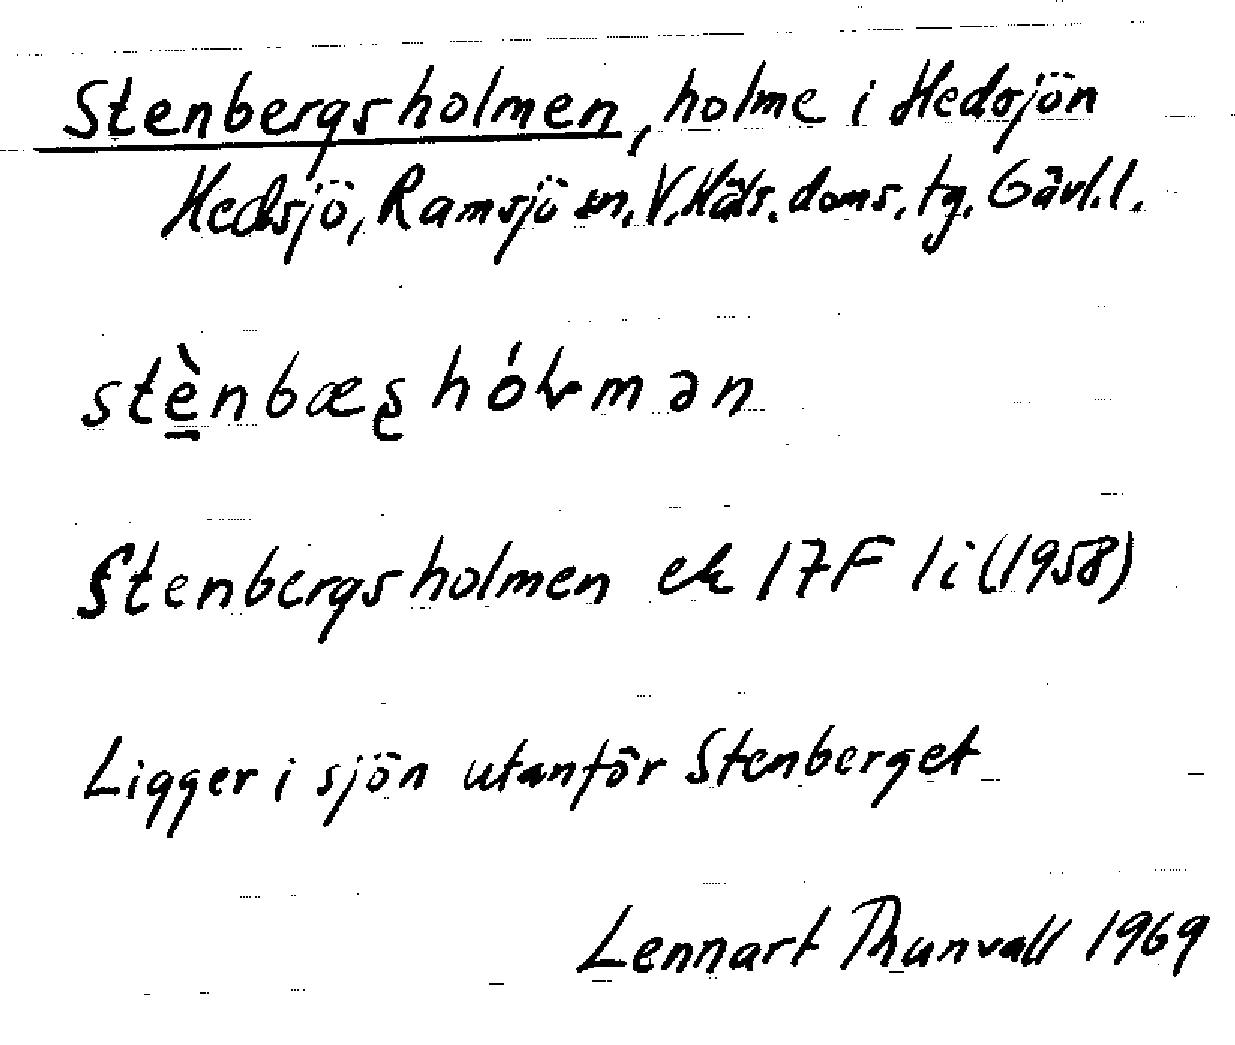 Stenbergsholmen, holme i Hedsjön
Hedsjö, Ramsjö sn, V. Häls. doms. tg, Gävl. l.
stè̱nbæʂhóɫmən
Stenbergsholmen ek 17F 1i (1958)
Ligger i sjön utanför Stenberget
Lennart Thunvall 1969